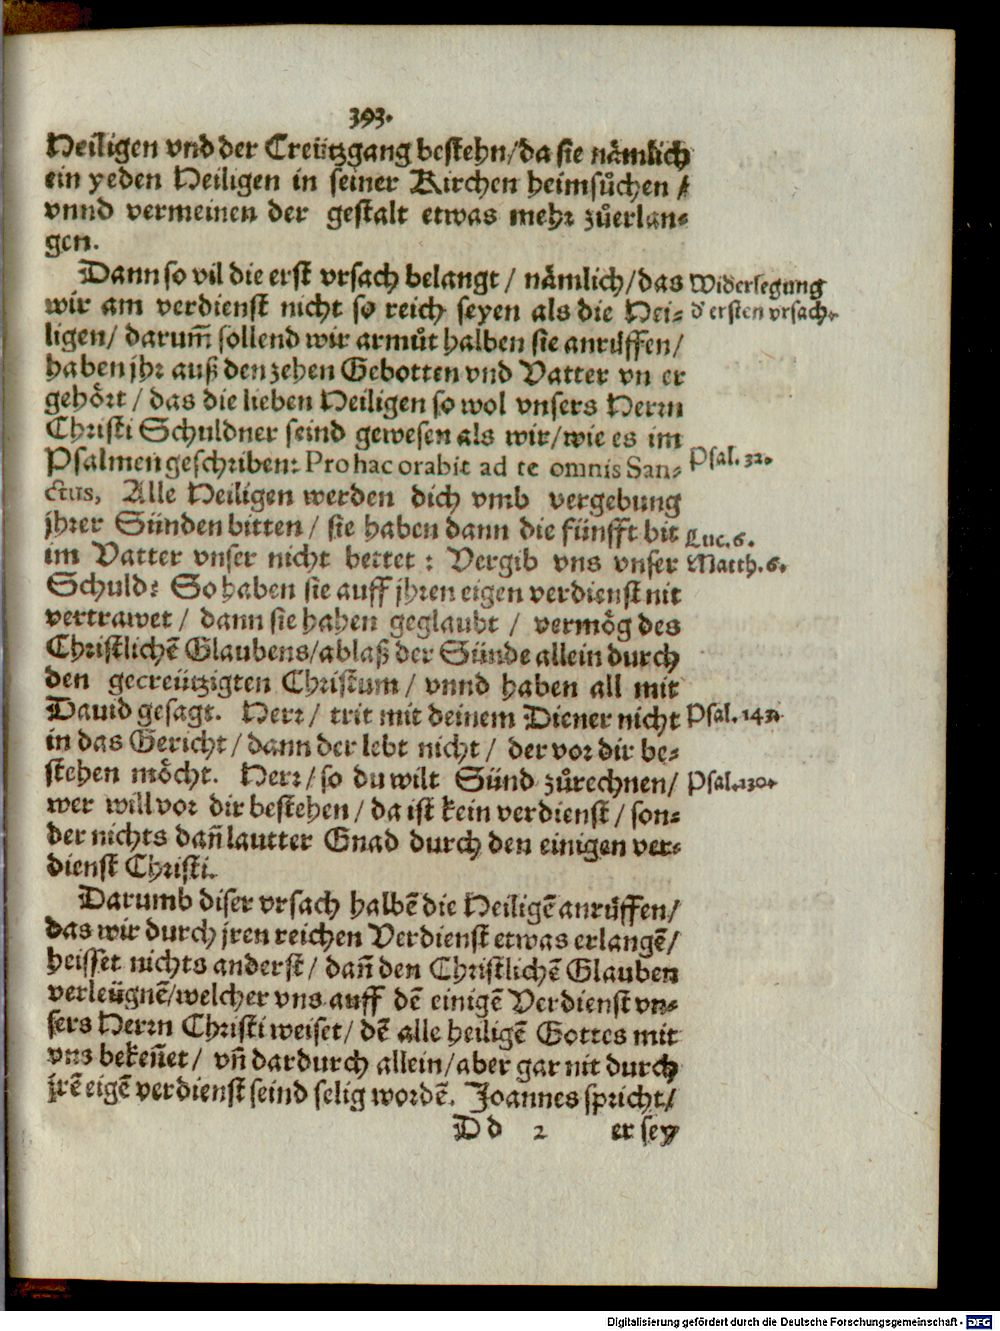 393.
Heiligen vnd der Creützgang bestehn/da sie nämlich
ein yeden Heiligen in seiner Kirchen heimsůchen /
vnnd vermeinen der gestalt etwas mehr zůerlan-
gen.
Dann so vil die erst vrsach belangt / nämlich/das
Widerlegung
wir am verdienst nicht so reich seyen als die Hei-
d' ersten vrsach.
ligen/ darum̃ sollend wir armůt halben sie anrůffen/
haben jhr auß den zehen Gebotten vnd Vatter vn er
gehört / das die lieben Heiligen so wol vnsers Herrn
Christi Schuldner seind gewesen als wir/wie es im
Psalmen geschriben: Pro hac orabit ad te omnis San-
Psal. 32.
ctus, Alle Heiligen werden dich vmb vergebung
jhrer Sünden bitten / sie haben dann die fünfft bit
Luc. 6.
im Vatter vnser nicht bettet : Vergib vns vnser
Matth. 6.
Schuld: So haben sie auff jhren eigen verdienst nit
vertrawet / dann sie haben geglaubt / vermög des
Christlichē Glaubens/ablaß der Sünde allein durch
den gecreützigten Christum / vnnd haben all mit
Dauid gesagt. Herr/ trit mit deinem Diener nicht
Psal. 143.
in das Gericht / dann der lebt nicht / der vor dir be-
stehen möcht. Herr/so du wilt Sünd zůrechnen/
Psal. 130.
wer will vor dir bestehen / da ist kein verdienst / son-
der nichts dañ lautter Gnad durch den einigen ver-
dienst Christi.
Darumb diser vrsach halbē die Heiligē anrůffen/
das wir durch jren reichen Verdienst etwas erlangē/
heisset nichts anderst / dañ den Christlichē Glauben
verleügnē/welcher vns auff dē einigē Verdienst vn-
sers Herrn Christi weiset/ dē alle heiligē Gottes mit
vns bekeñet / vñ dardurch allein/aber gar nit durch
jrē eigē verdienst seind selig wordē. Joannes spricht/
D d 2 er sey
Digitalisierung gefördert durch die Deutsche Forschungsgemeinschaft - DFG